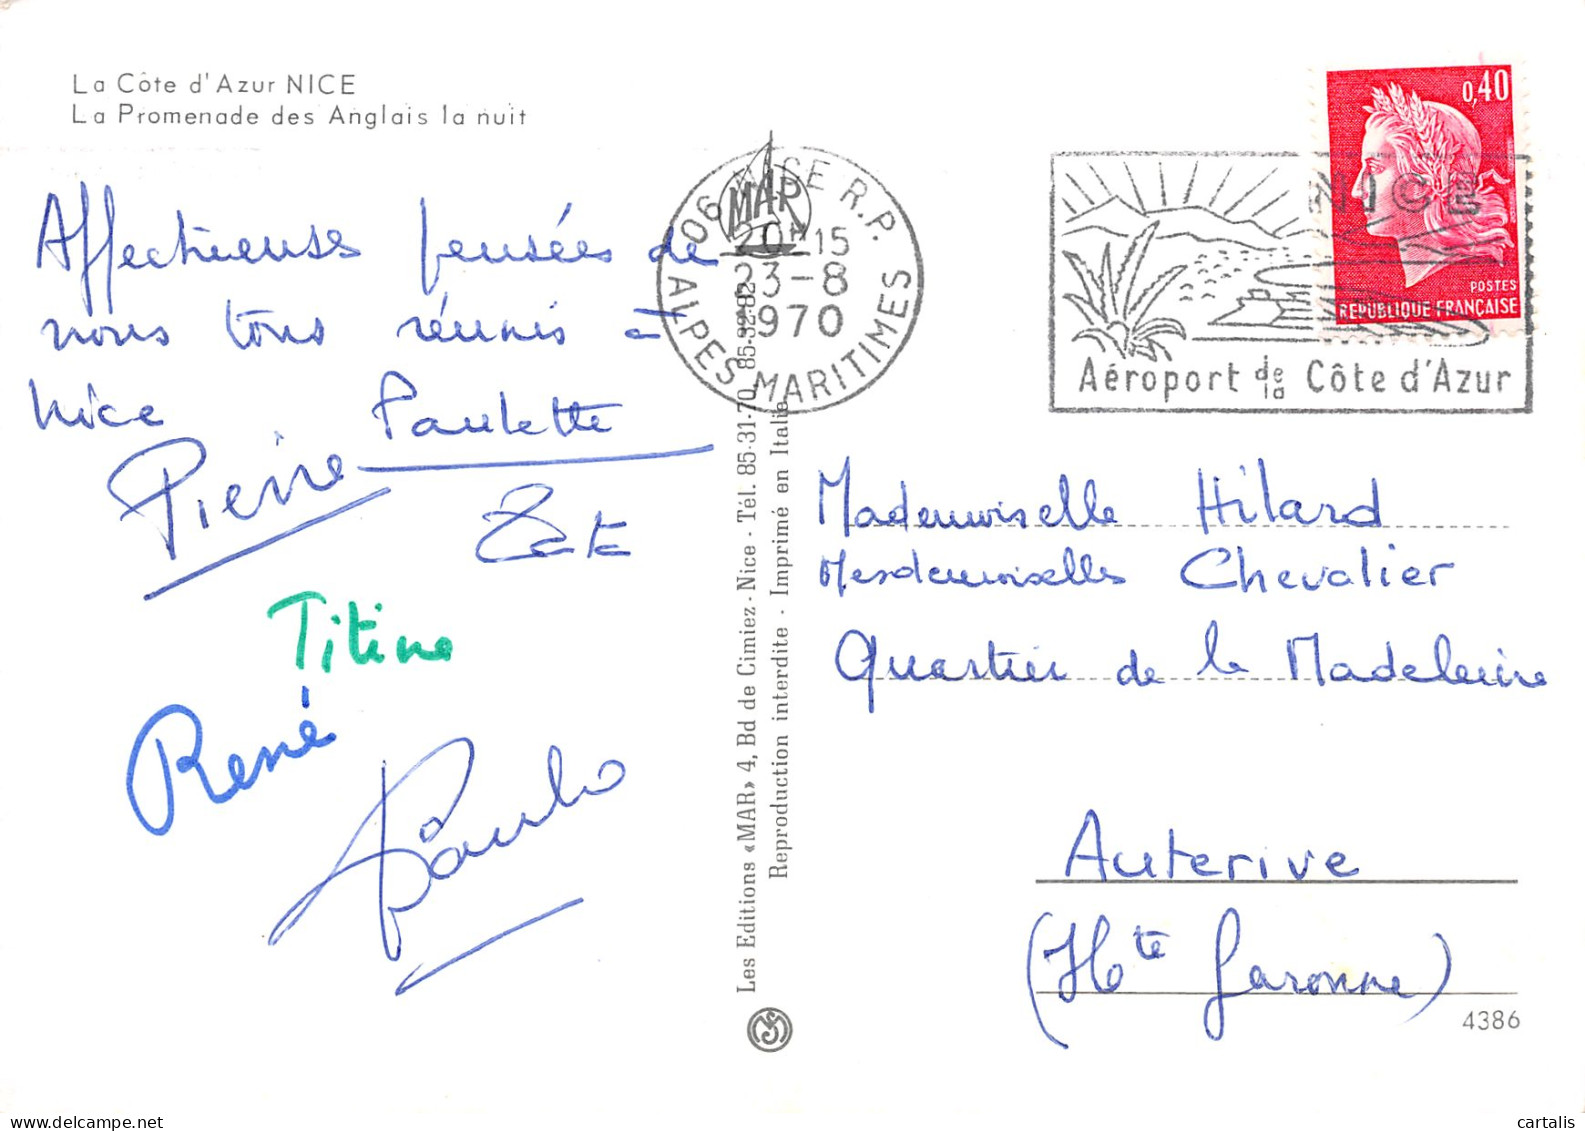 La Côte d'Azur NICE
La Promenade des Anglais la nuit
Affectueuses pensées de
nous tous réunis à
Nice Paulette
Pierre
Titine
René
MAR
06 NICE R.P.
20H15
23-8
1970
ALPES MARITIMES
NICE
Aéroport de la Côte d'Azur
0,40
POSTES
REPUBLIQUE FRANÇAISE
Les Editions «MAR» 4, Bd de Cimiez - Nice - Tél. 85-31-70 85-32-82
Reproduction interdite - Imprimé en Italie
Mademoiselle Hilard
Mesdemoiselles Chevalier
Quartier de la Madeleine
Auterive
(Hte Garonne)
4386
cartalis